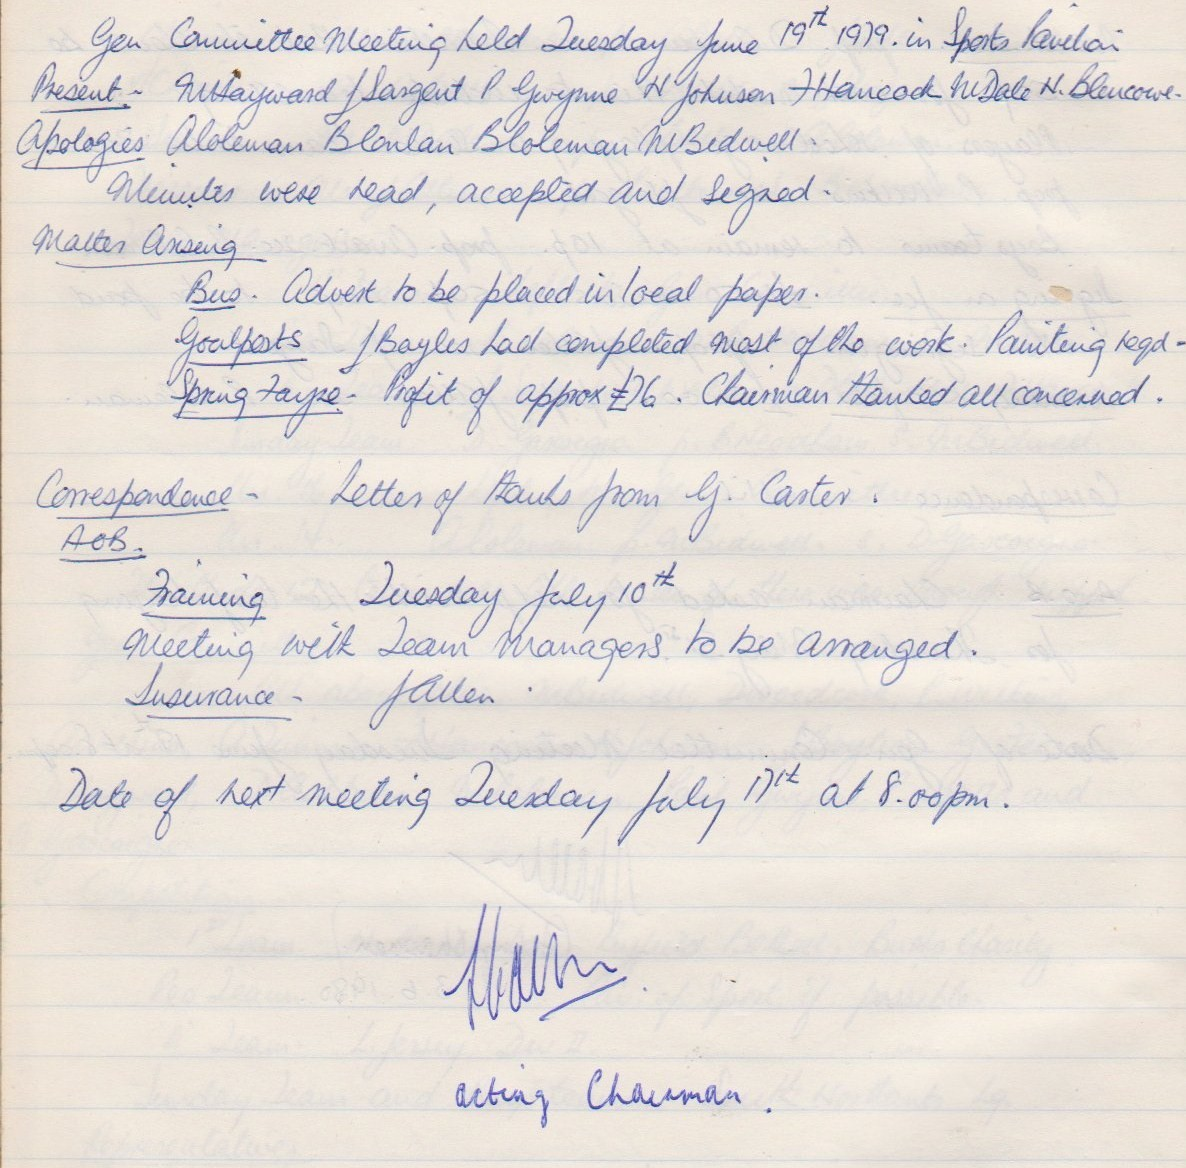 Gen Committee Meeting held Tuesday June 19th 1979. in Sports Pavilion
Present - M Hayward J Sargent P Gwynne H Johnson F Hancock M Dale H. Blencowe.
Apologies A Coleman B Conlan B Coleman M Bedwell.
Minutes were read, accepted and signed.
Matter Arising
Bus. Advert to be placed in local paper.
Goalposts J Bayles had completed most of the work. Painting reqd -
Spring Fayre - Profit of approx £76. Chairman thanked all concerned.
Correspondence - Letter of thanks from G. Carter.
AOB.
Training Tuesday July 10th
Meeting with Team Managers to be arranged.
Insurance - J Allen.
Date of next meeting Tuesday July 17th at 8.00pm.
acting Chairman.